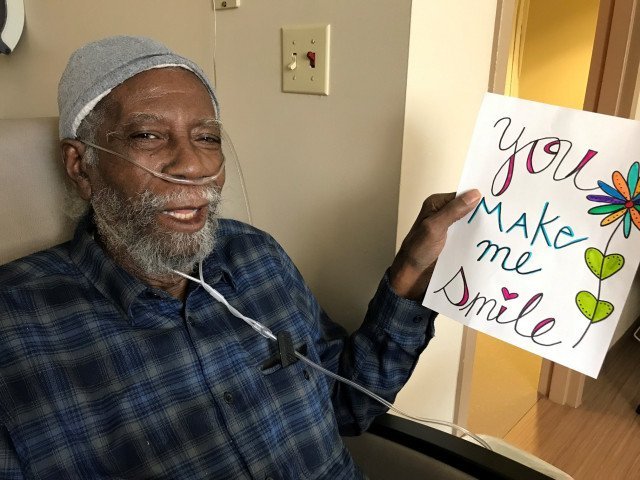 You
Make
me
smile